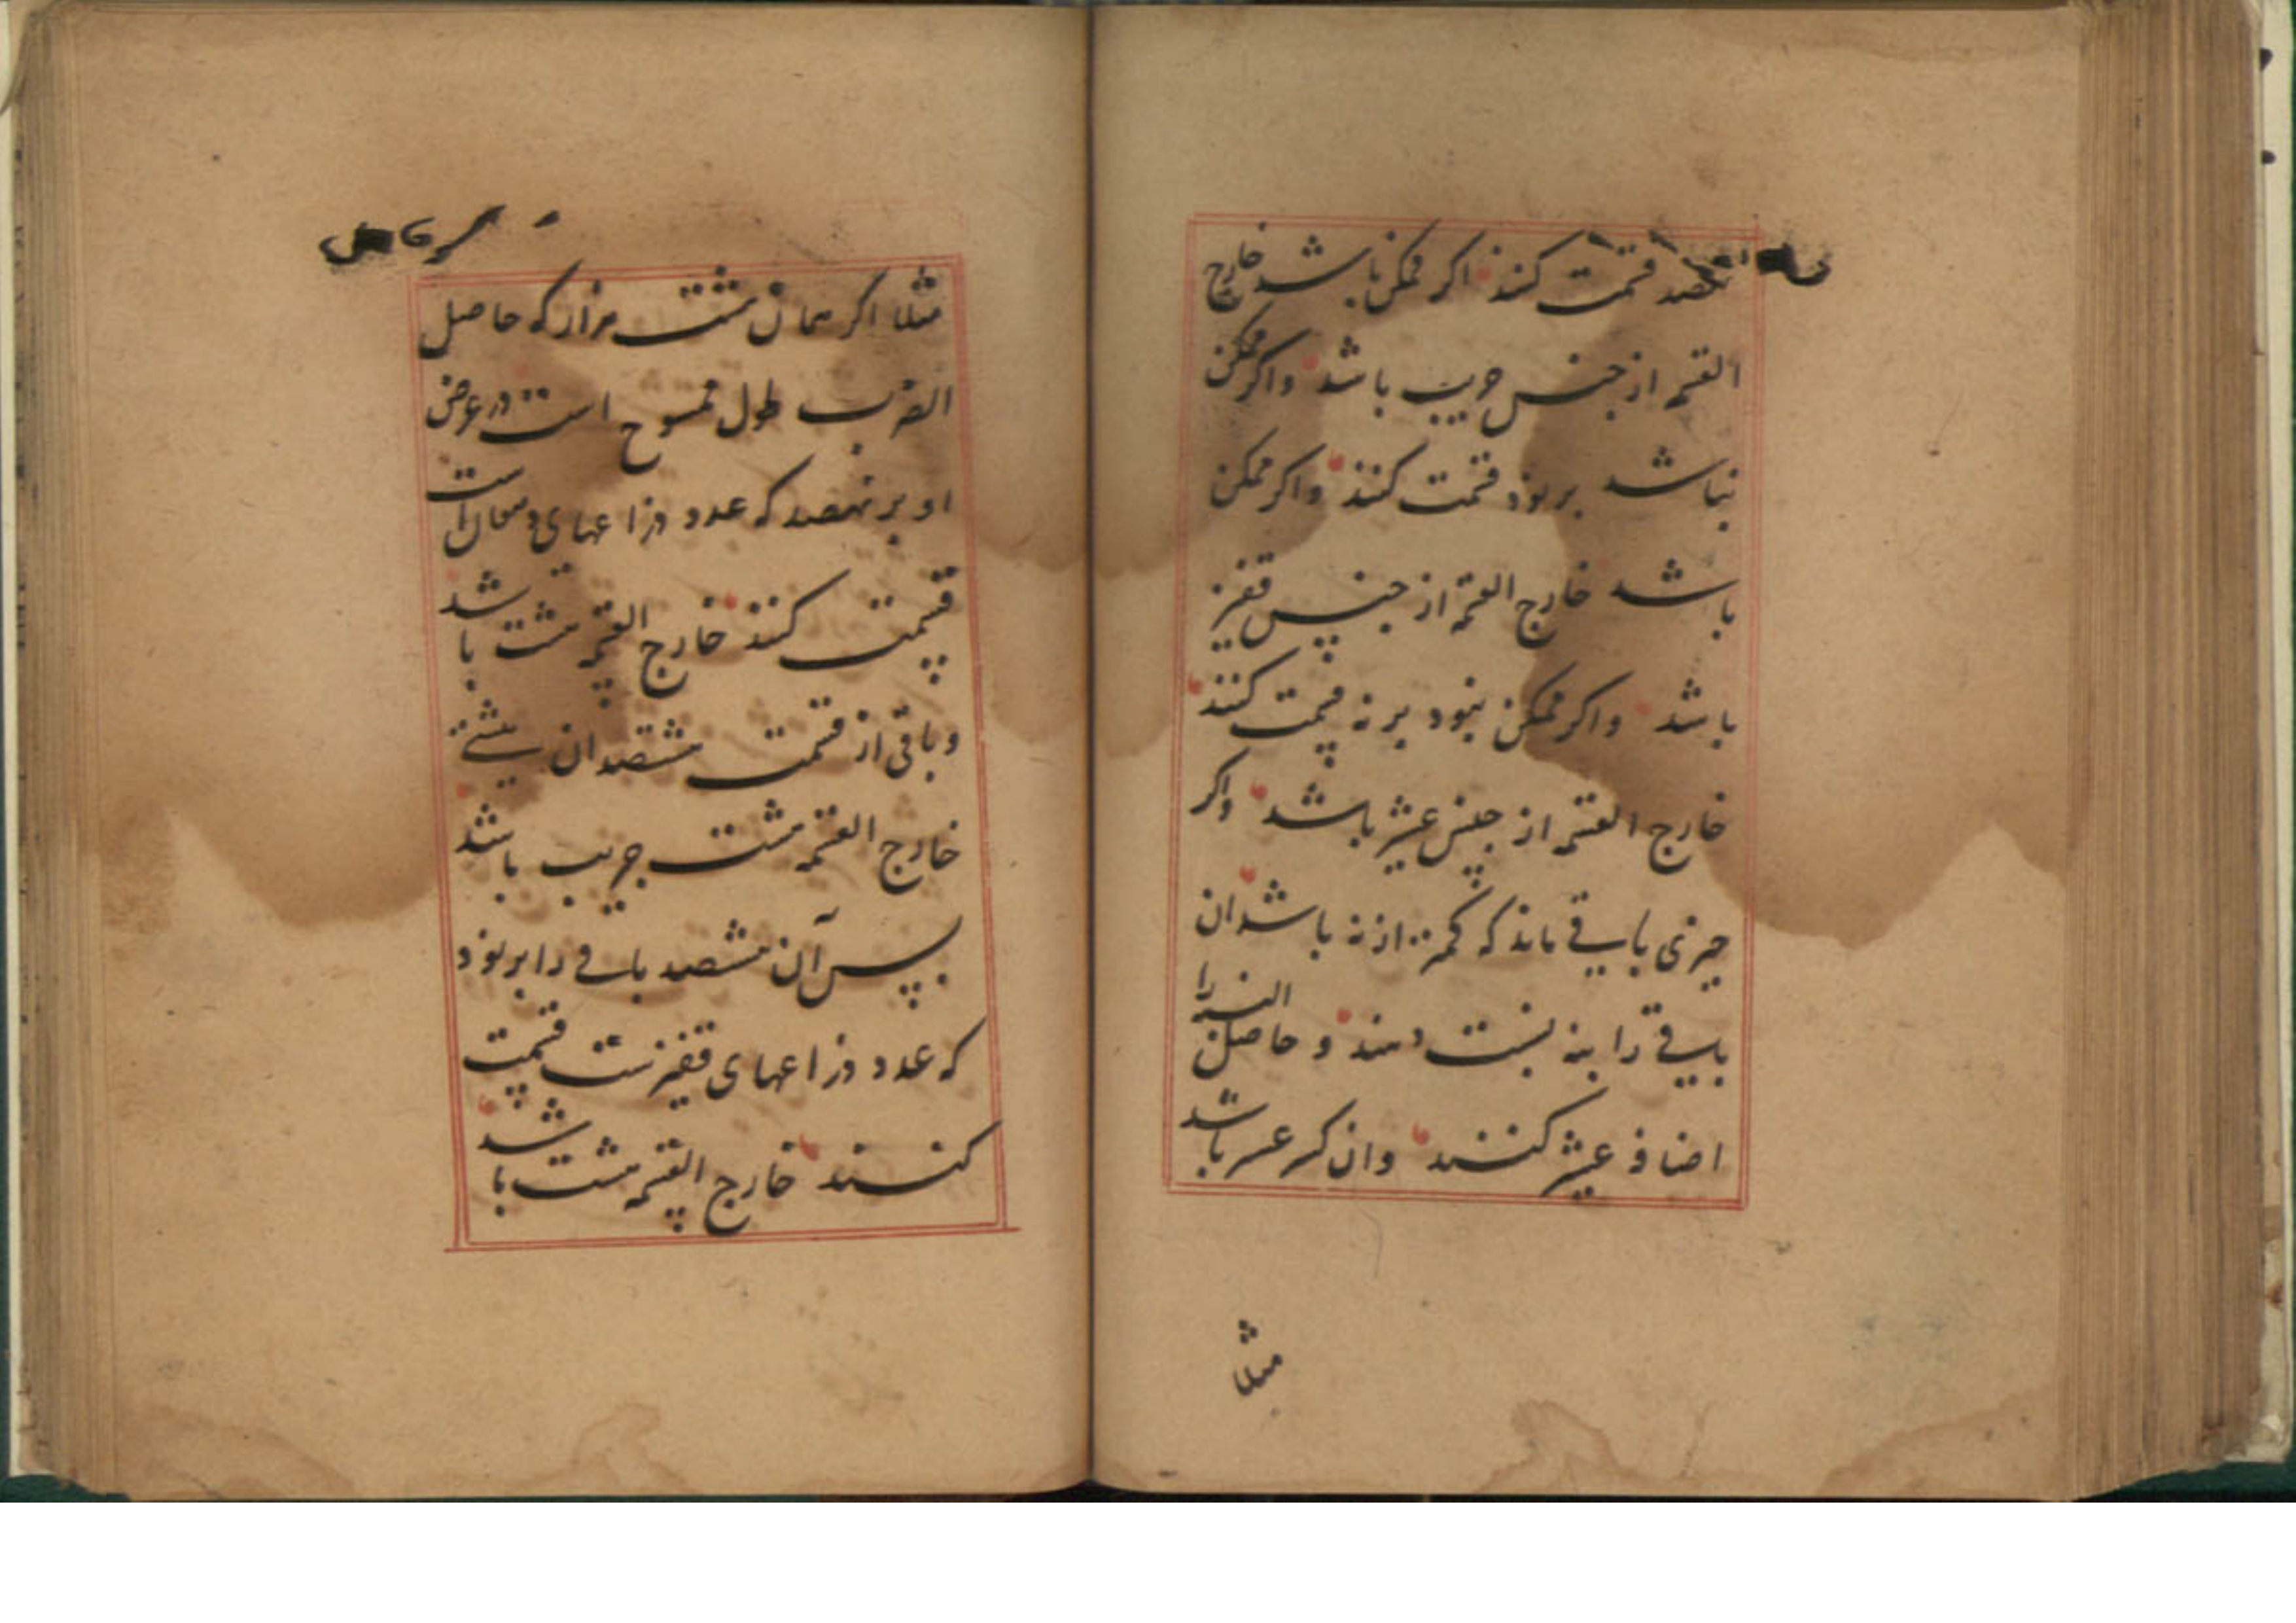 نهصد قسمت کنند اکر ممکن باشد خارج
القسمه از جنس جریب باشد واکر ممکن
نباشد بر نود قسمت کنند واکر ممکن
باشد خارج القسمه از جنس قفیز
باشد واکر ممکن نبود بر نه قسمت کنند
خارج القسمه از جنس عشیر باشد واکر
چیزی باقی ماند که کمتر از نه باشد ان
باقی را بنه نسبت دهند و حاصل النسبه را
اضافه عشیر کنند وان کسر عشر باشد
مثلا
مثلا اکر همان هشت هزار که حاصل
الضرب طول ممسوح است در عرض
او بر نهصد که عدد ذراعهای است
قسمت کنند خارج القسمه هشت باشد
وباقی از قسمت هشتصد ان
خارج القسمه هشت جریب باشد
پس آن هشتصد باقی را بر نود
که عدد ذراعهای قفیز ست قسمت
کنند خارج القسمه هشت باشد